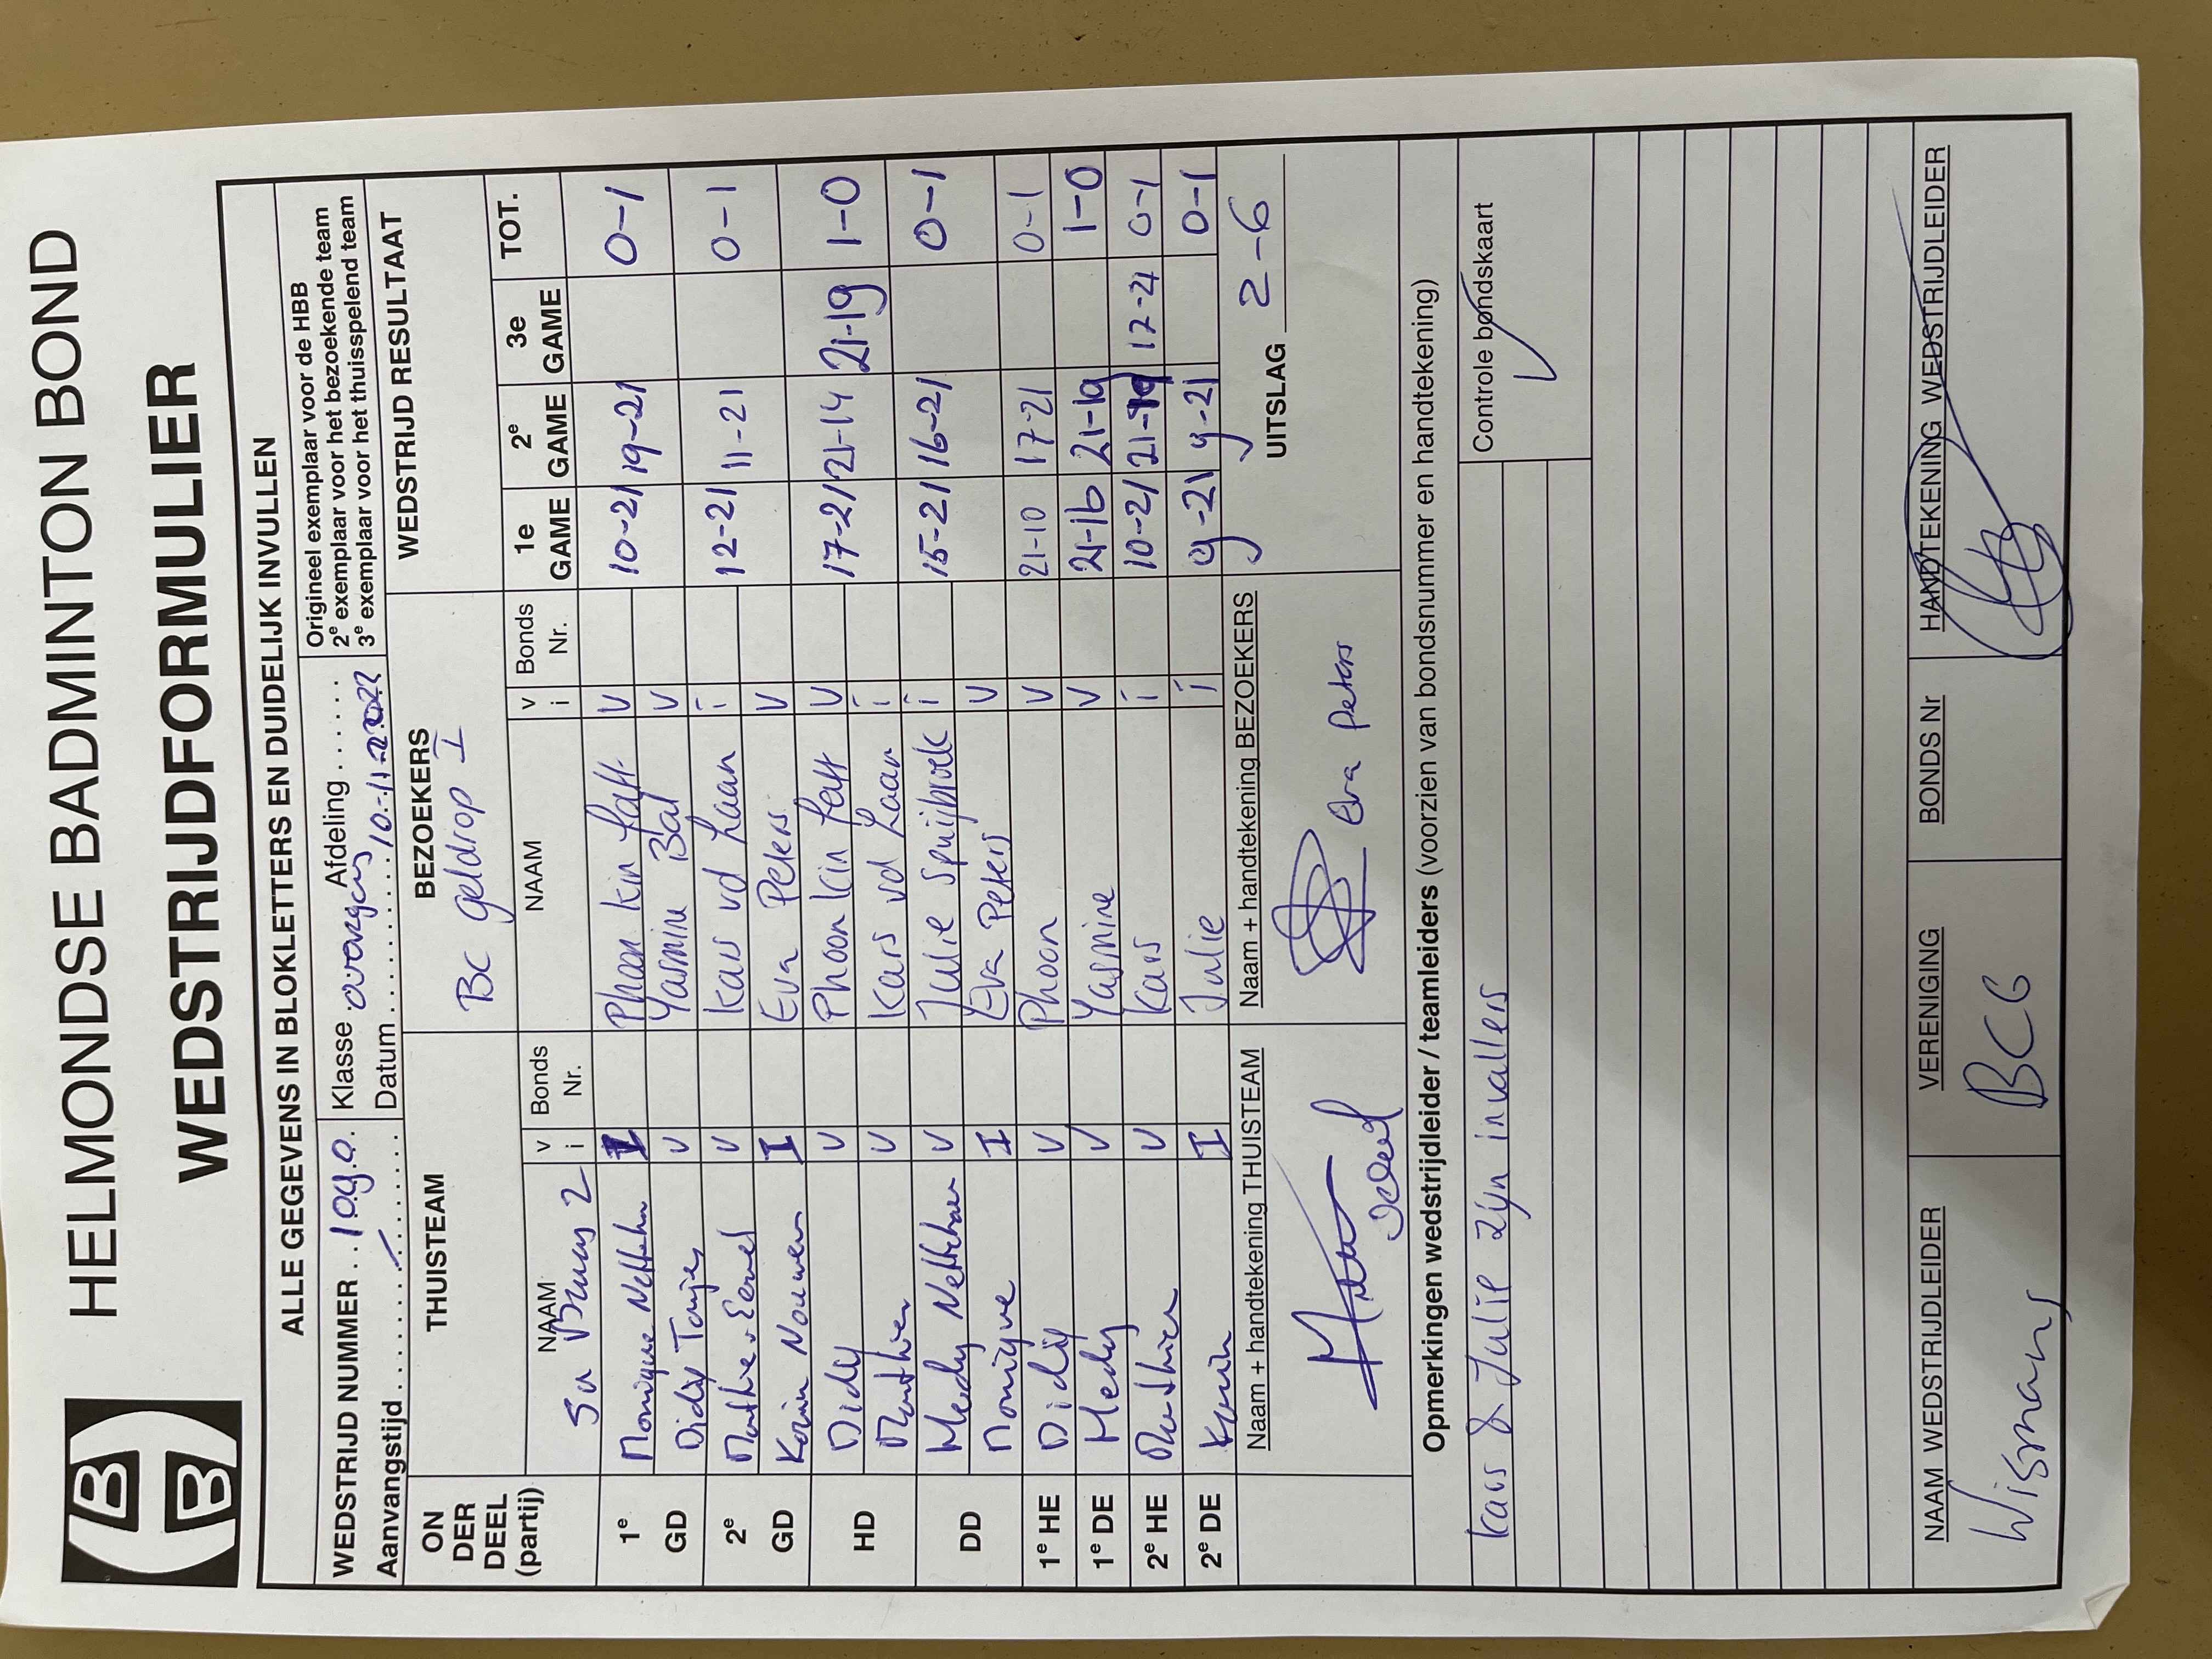 HELMONDSE BADMINTON BOND
WEDSTRIJDFORMULIER
ALLE GEGEVENS IN BLOKLETTERS EN DUIDELIJK INVULLEN
WEDSTRIJD NUMMER Klasse overgang Afdeling
Aanvangstijd Datum 10-11-2022
Origineel exemplaar voor de HBB
2e exemplaar voor het bezoekende team
3e exemplaar voor het thuisspelend team
ON DER DEEL (partij) THUISTEAM BEZOEKERS WEDSTRIJD RESULTAAT
BC Geldrop I
NAAM v i Bonds Nr. NAAM v i Bonds Nr. 1e GAME 2e GAME 3e GAME TOT.
1e GD Monique I Phoon Kin V 10-21 19-21 0-1
Didy V Yasmine Bal V
2e GD V Kars vd Laan i 12-21 11-21 0-1
Karin Nouwen I Eva Peters V
HD Didy V Phoon Kin V 17-21 21-14 21-19 1-0
V Kars vd Laan i
DD Hedy V Julie Spuijbroek i 15-21 16-21 0-1
Monique I Eva Peters V
1e HE Didy V Phoon V 21-10 17-21 0-1
1e DE Hedy V Yasmine V 21-16 21-19 1-0
2e HE V Kars i 10-21 21-19 17-21 0-1
2e DE Karin I Julie i 9-21 9-21 0-1
Naam + handtekening THUISTEAM Naam + handtekening BEZOEKERS UITSLAG 2-6
Eva Peters
Opmerkingen wedstrijdleider / teamleiders (voorzien van bondsnummer en handtekening)
Kars & Julie zijn invallers Controle bondskaart
NAAM WEDSTRIJDLEIDER VERENIGING BONDS Nr HANDTEKENING WEDSTRIJDLEIDER
Wismans BCG